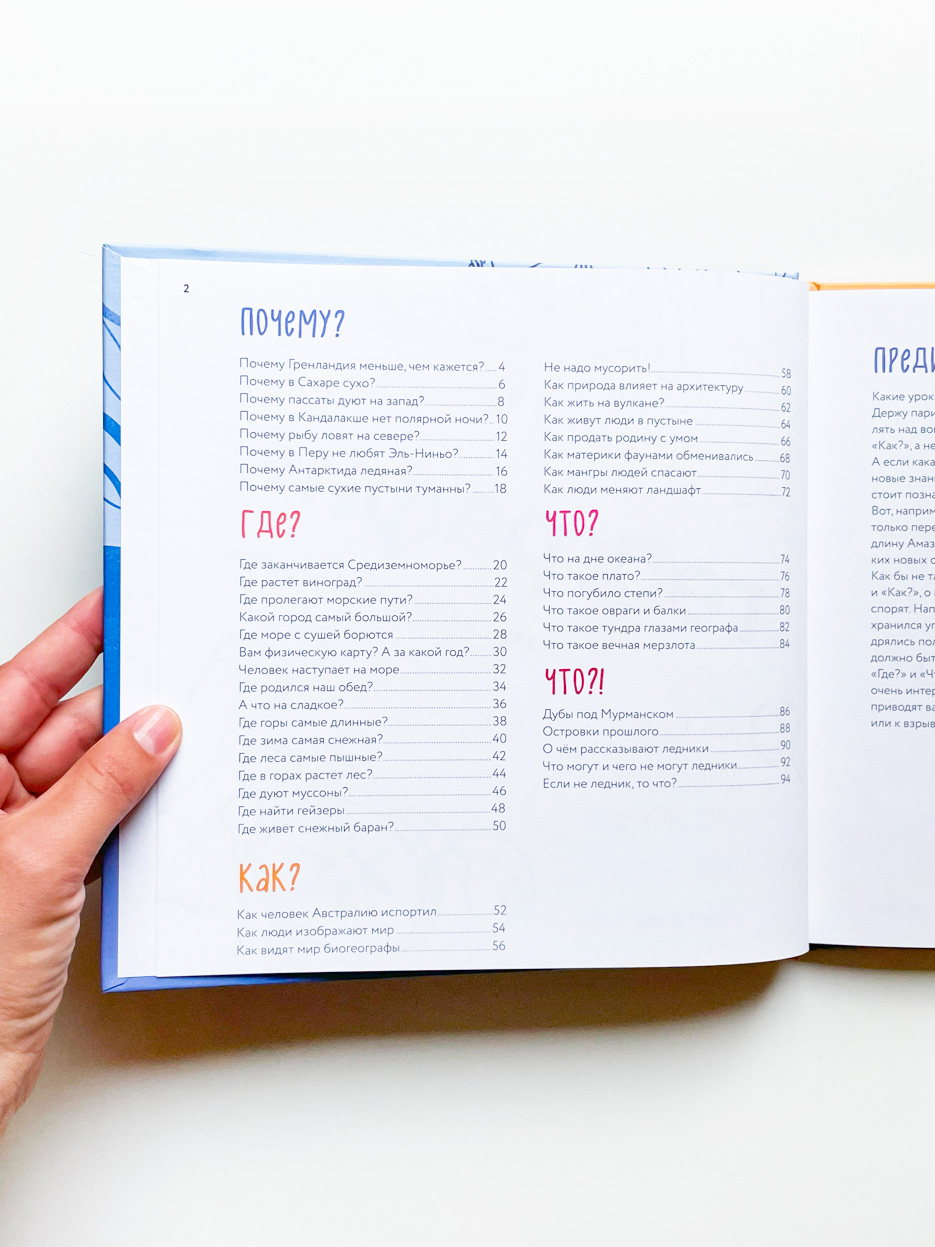 2
ПОЧЕМУ?
Почему Гренландия меньше, чем кажется?.....4
Почему в Сахаре сухо?.....6
Почему пассаты дуют на запад?.....8
Почему в Кандалакше нет полярной ночи?..10
Почему рыбу ловят на севере?.....12
Почему в Перу не любят Эль-Ниньо?.....14
Почему Антарктида ледяная?.....16
Почему самые сухие пустыни туманны?.....18
ГДЕ?
Где заканчивается Средиземноморье?.....20
Где растёт виноград?.....22
Где пролегают морские пути?.....24
Какой город самый большой?.....26
Где море с сушей борются.....28
Вам физическую карту? А за какой год?.....30
Человек наступает на море.....32
Где родился наш обед?.....34
А что на сладкое?.....36
Где горы самые длинные?.....38
Где зима самая снежная?.....40
Где леса самые пышные?.....42
Где в горах растёт лес?.....44
Где дуют муссоны?.....46
Где найти гейзеры.....48
Где живёт снежный баран?.....50
КАК?
Как человек Австралию испортил.....52
Как люди изображают мир.....54
Как видят мир биогеографы.....56
Не надо мусорить!.....58
Как природа влияет на архитектуру.....60
Как жить на вулкане?.....62
Как живут люди в пустыне.....64
Как продать родину с умом.....66
Как материки фаунами обменивались.....68
Как мангры людей спасают.....70
Как люди меняют ландшафт.....72
ЧТО?
Что на дне океана?.....74
Что такое плато?.....76
Что погубило степи?.....78
Что такое овраги и балки.....80
Что такое тундра глазами географа.....82
Что такое вечная мерзлота.....84
ЧТО?!
Дубы под Мурманском.....86
Островки прошлого.....88
О чём рассказывают ледники.....90
Что могут и чего не могут ледники.....92
Если не ледник, то что?.....94
ПРЕДИ
Какие урок
Держу пари
лять над во
«Как?», а не
А если кака
новые знан
стоит позна
Вот, наприм
только пере
длину Амаз
ких новых с
Как бы не та
и «Как?», о
спорят. Нап
хранился у
дрялись пол
должно быт
«Где?» и «Ч
очень интер
приводят ва
или к взрыв